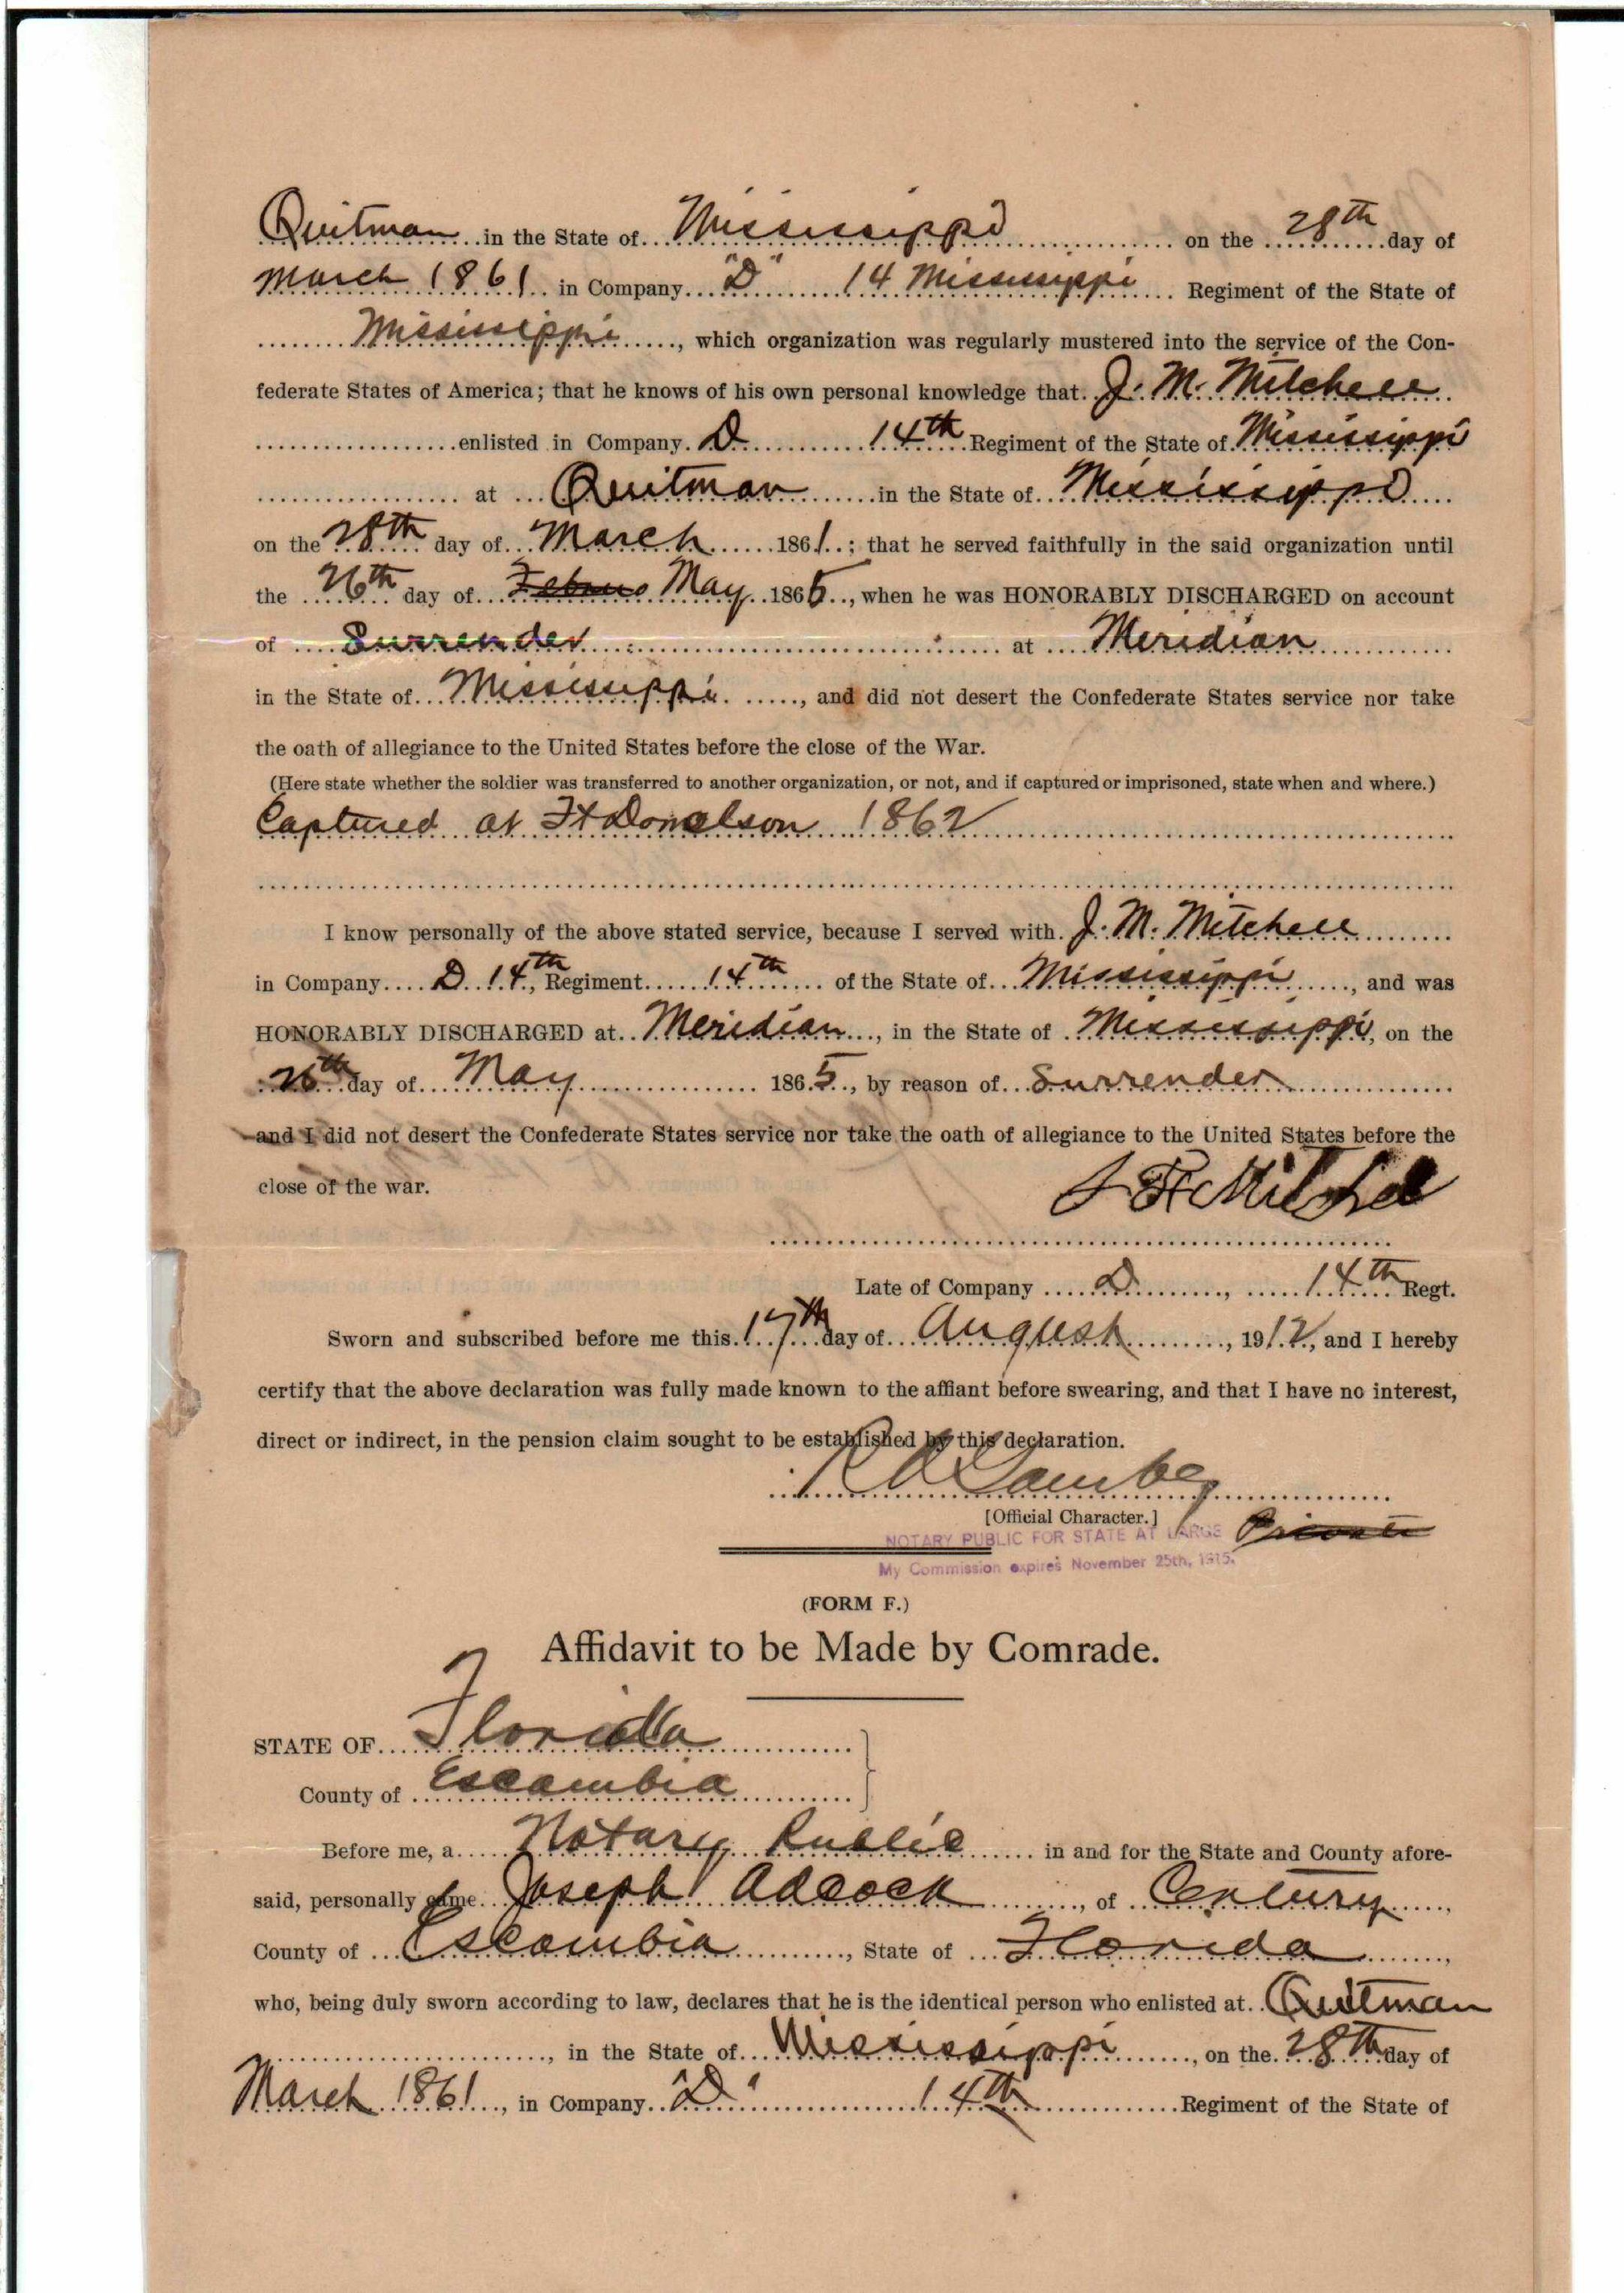 Quitman in the State of Mississippi on the 28th day of
March 1861 in Company "D" 14 Mississippi Regiment of the State of
Mississippi, which organization was regularly mustered into the service of the Con-
federate States of America; that he knows of his own personal knowledge that J. M. Mitchell
enlisted in Company D 14th Regiment of the State of Mississippi
at Quitman in the State of Mississippi
on the 28th day of March 1861; that he served faithfully in the said organization until
the 26th day of Februo May 1865, when he was HONORABLY DISCHARGED on account
of Surrender at Meridian
in the State of Mississippi, and did not desert the Confederate States service nor take
the oath of allegiance to the United States before the close of the War.
(Here state whether the soldier was transferred to another organization, or not, and if captured or imprisoned, state when and where.)
Captured at Ft Donelson 1862
I know personally of the above stated service, because I served with J. M. Mitchell
in Company D 14th, Regiment 14th of the State of Mississippi, and was
HONORABLY DISCHARGED at Meridian, in the State of Mississippi, on the
26th day of May 1865, by reason of Surrender
and I did not desert the Confederate States service nor take the oath of allegiance to the United States before the
close of the war.
Mitchel
Late of Company D, 14th Regt.
Sworn and subscribed before me this 17th day of August, 1912, and I hereby
certify that the above declaration was fully made known to the affiant before swearing, and that I have no interest,
direct or indirect, in the pension claim sought to be established by this declaration.
[Official Character.] Private
NOTARY PUBLIC FOR STATE AT LARGE
My Commission expires November 25th, 1915.
(FORM F.)
Affidavit to be Made by Comrade.
STATE OF Florida
County of Escambia
Before me, a Notary Public in and for the State and County afore-
said, personally came Joseph Adcock, of Century,
County of Escambia, State of Florida,
who, being duly sworn according to law, declares that he is the identical person who enlisted at Quitman
, in the State of Mississippi, on the 28th day of
March 1861, in Company "D" 14th Regiment of the State of